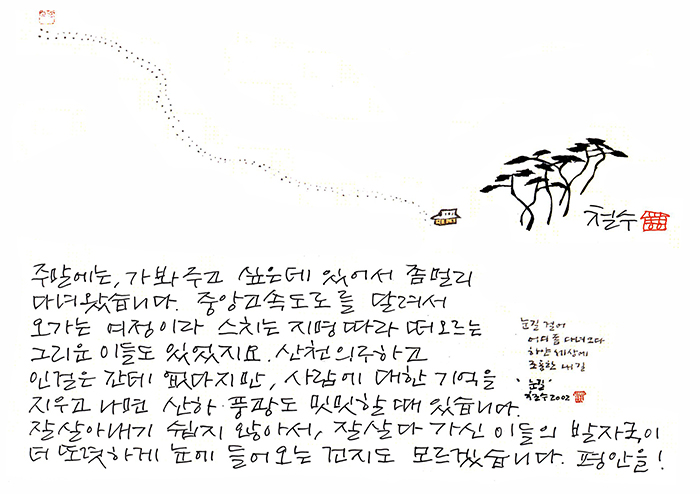 철수
주말에는, 가 봐 주고 싶은데 있어서 좀 멀리
다녀왔습니다. 중앙고속도로를 달려서
오가는 여정이라 스치는 지명 따라 떠오르는
그리운 이들도 있었지요. 산천 의구하고
인걸은 간데 없다지만, 사람에 대한 기억을
지우고 나면 산하·풍광도 밋밋할 때 있습니다.
잘 살아내기 쉽지 않아서, 잘 살다 가신 이들의 발자국이
더 또렷하게 눈에 들어오는 건지도 모르겠습니다. 평안을!
눈길 걸어
어디 좀 다녀오다
하얀 세상에
조용한 내 길
'눈길'
이철수 2002